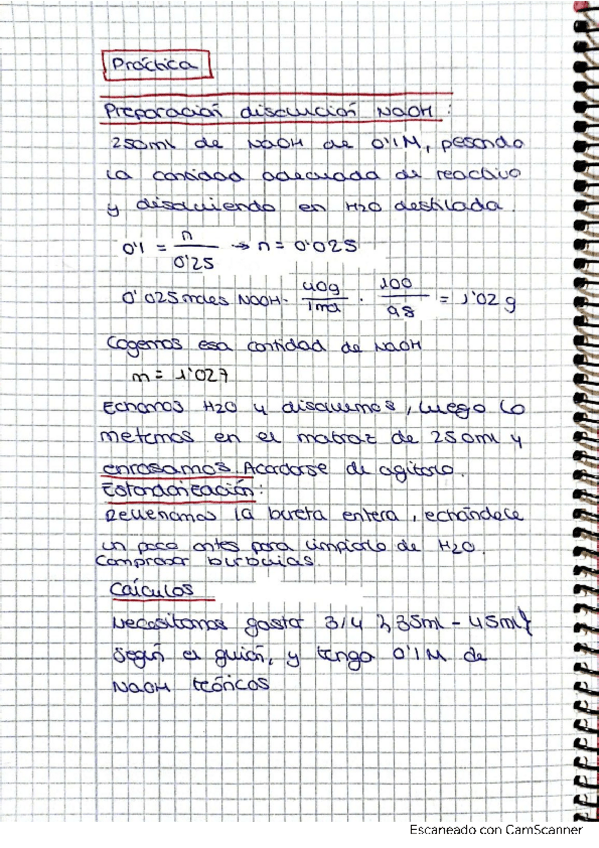 Práctica
Preparación disolución NaOH:
250ml de NaOH de 0'1M, pesando
la cantidad adecuada de reactivo
y disolviendo en H2O destilada.
0'1 = n / 0'25 → n = 0'025
0'025 moles NaOH · 40g / 1mol · 100 / 98 = 1'02 g
Cogemos esa cantidad de NaOH
m = 1'027
Echamos H2O y disolvemos, luego lo
metemos en el matraz de 250ml y
enrasamos. Acordarse de agitarlo.
Estandarización:
Rellenamos la bureta entera, echándole
un poco antes para limpiarlo de H2O.
Comprobar burbujas.
Cálculos
Necesitamos gastar 3/4 {35ml - 45ml}
según el guión, y tengo 0'1M de
NaOH teóricos
Escaneado con CamScanner